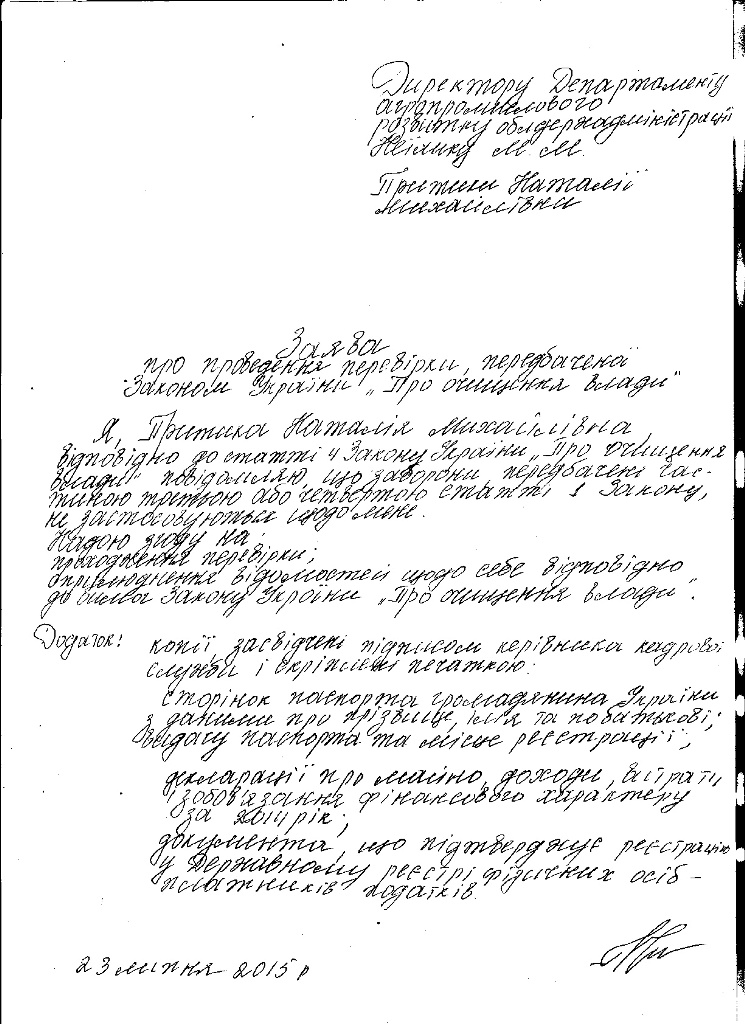 Директору Департаменту
агропромислового
розвитку облдержадміністрації
М. М.
Притики Наталії
Михайлівни
Заява
про проведення перевірки, передбаченої
Законом України „Про очищення влади"
Я, Притика Наталія Михайлівна,
відповідно до статті 4 Закону України „Про очищення
влади" повідомляю, що заборони передбачені час-
тиною третьою або четвертою статті 1 Закону,
не застосовуються щодо мене.
Надаю згоду на:
проходження перевірки;
оприлюднення відомостей щодо себе відповідно
до Закону України „Про очищення влади".
Додаток: копії, засвідчені підписом керівника кадрової
служби і скріплені печаткою:
сторінок паспорта громадянина України
з даними про прізвище, ім'я та по батькові,
видачу паспорта та місце реєстрації;
декларації про майно, доходи, витрати,
зобов'язання фінансового характеру
за 2014 рік;
документа, що підтверджує реєстрацію
у Державному реєстрі фізичних осіб -
платників податків.
23 липня 2015 р